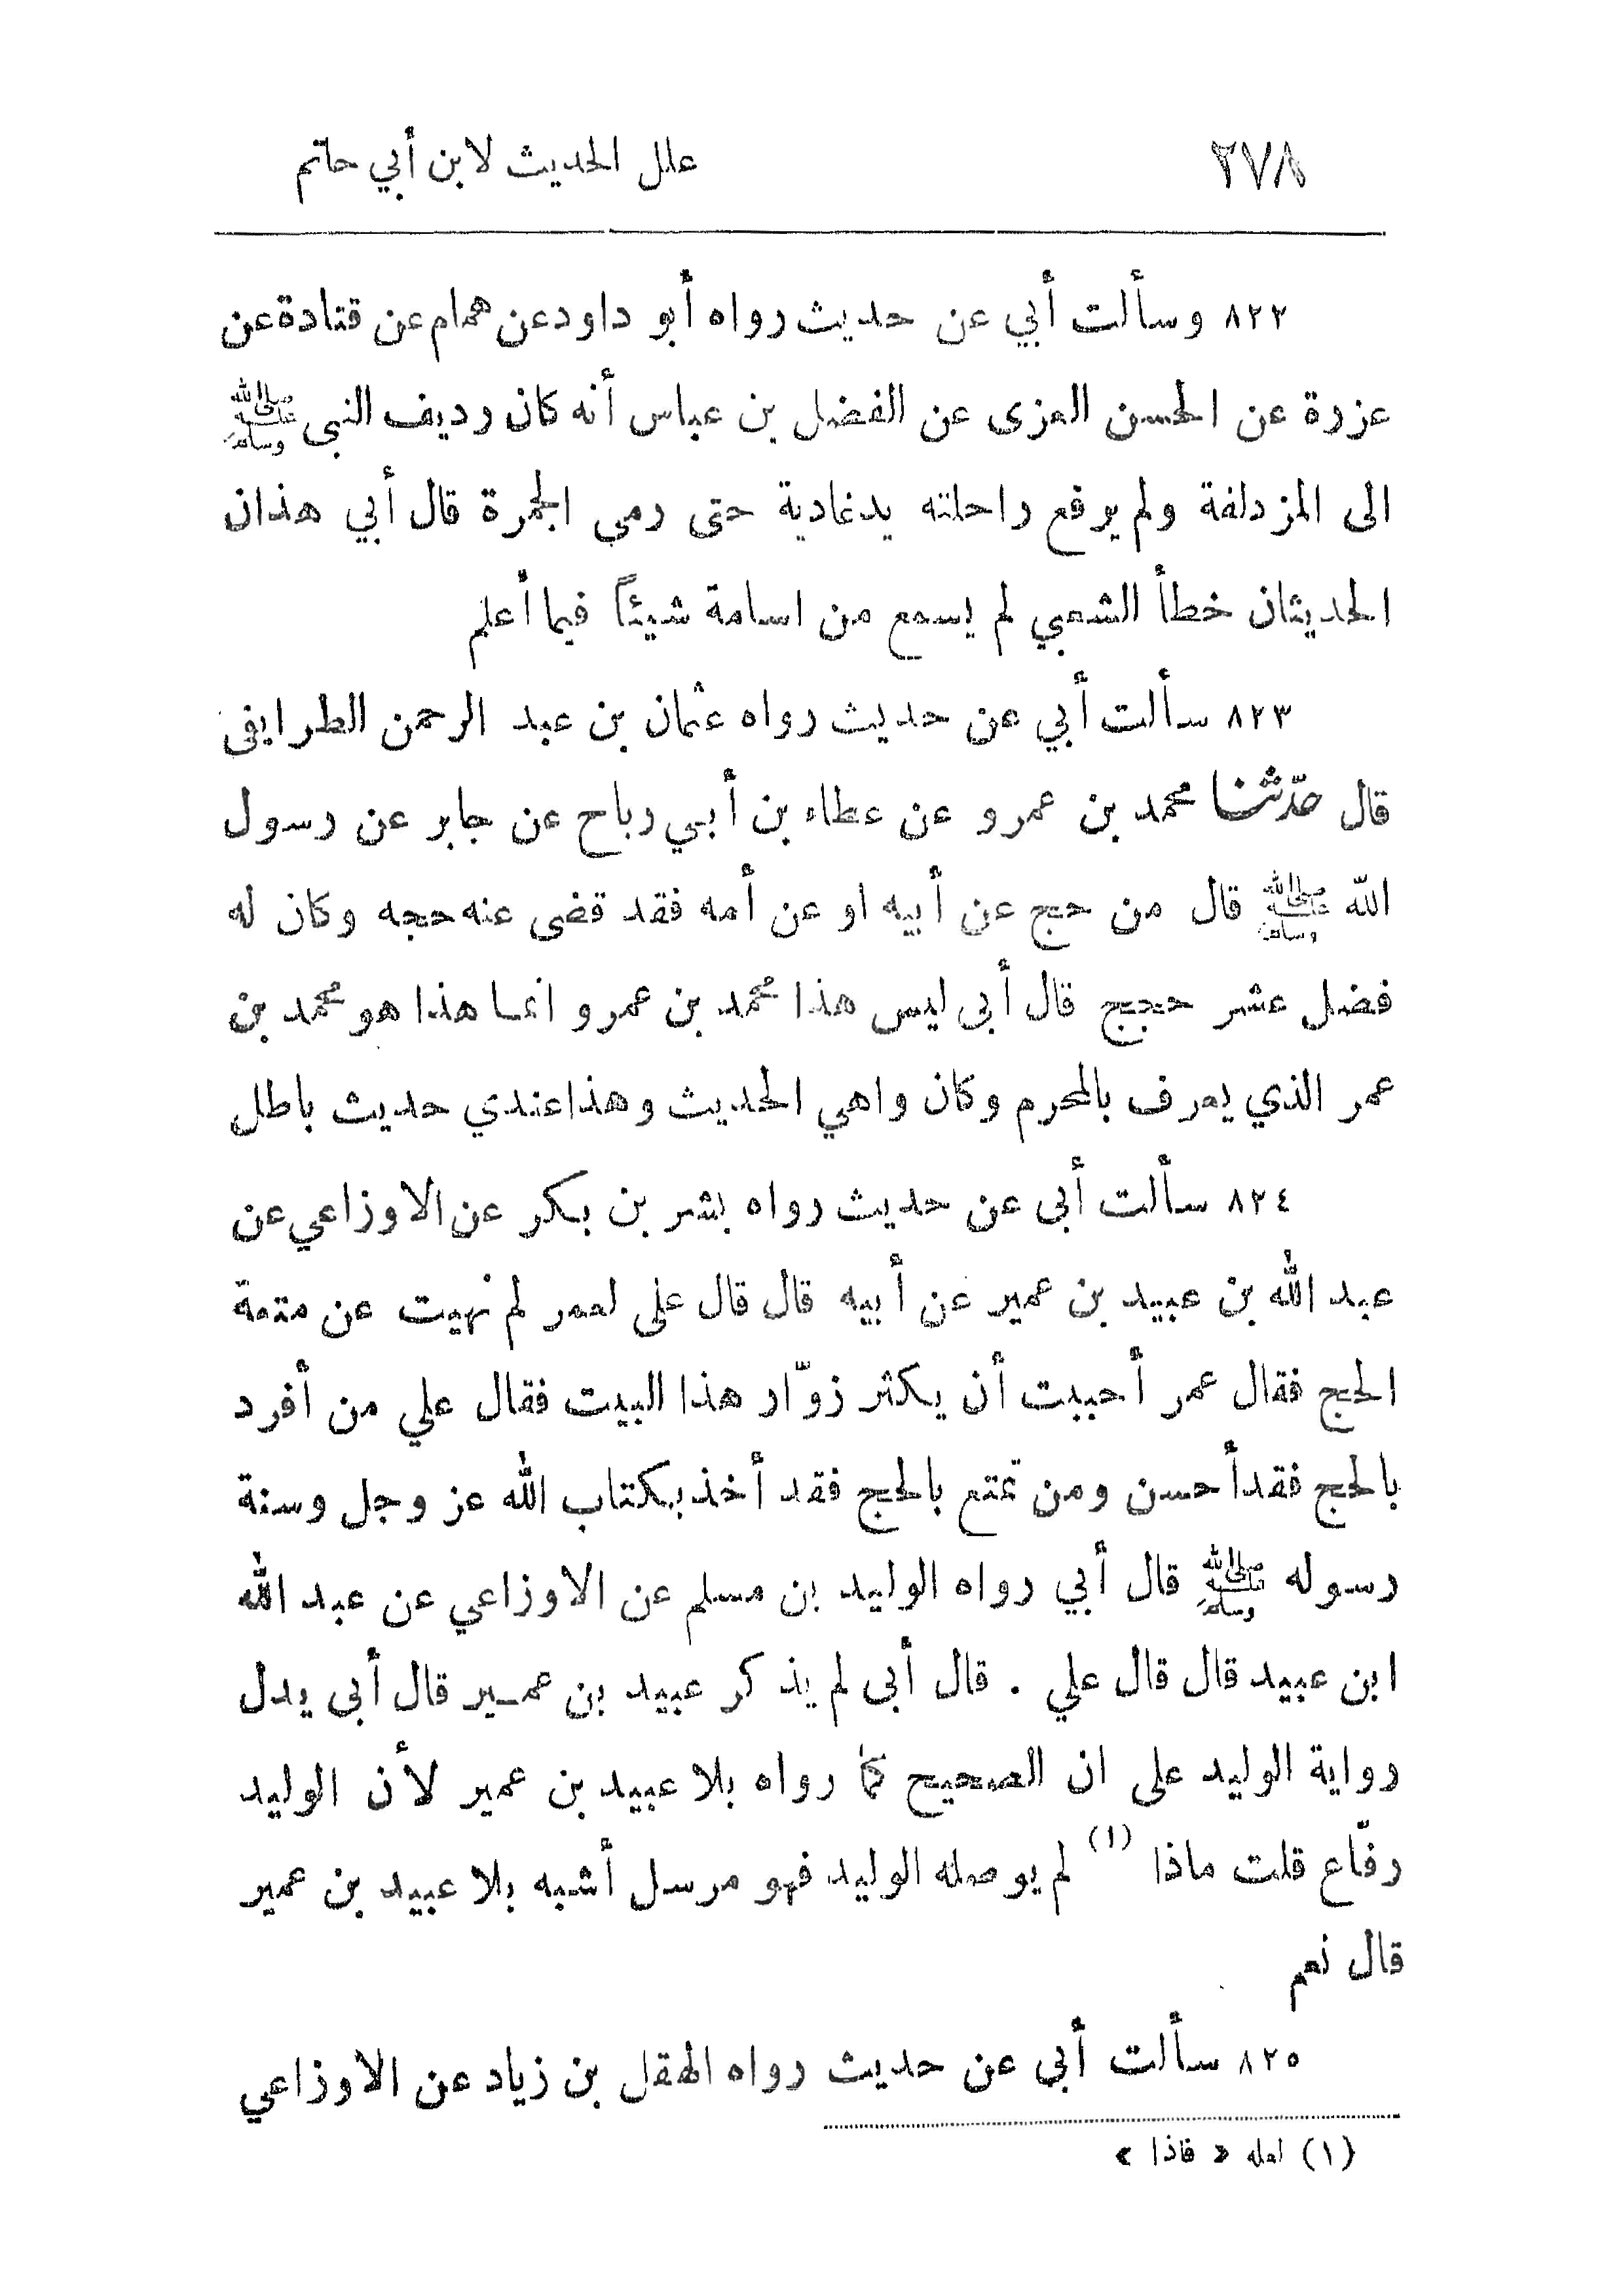 ٢٧٨ علل الحديث لابن أبي حاتم
٨٢٢ وسألت أبي عن حديث رواه أبو داود عن همام عن قتادة عن
عزرة عن الحسن العزى عن الفضل بن عباس أنه كان رديف النبي ﷺ
الى المزدلفة ولم يرفع راحلته يدغادية حتى رمى الجمرة قال أبي هذان
الحديثان خطأ الشعبي لم يسمع من اسامة شيئاً فيما أعلم
٨٢٣ سألت أبي عن حديث رواه عثمان بن عبد الرحمن الطرايفى
قال حدّثنا محمد بن عمرو عن عطاء بن أبي رباح عن جابر عن رسول
اللّه ﷺ قال من حج عن أبيه او عن أمه فقد قضى عنه حجه وكان له
فضل عشر حجج قال أبى ليس هذا محمد بن عمرو انما هذا هو محمد بن
عمر الذي يعرف بالمحرم وكان واهي الحديث وهذا عندي حديث باطل
٨٢٤ سألت أبى عن حديث رواه بشر بن بكر عن الاوزاعي عن
عبد الله بن عبيد بن عمير عن أبيه قال قال على لعمر لم نهيت عن متعة
الحج فقال عمر أحببت أن يكثر زوّار هذا البيت فقال علي من أفرد
بالحج فقد أحسن ومن تمتع بالحج فقد أخذ بكتاب الله عز وجل وسنة
رسوله ﷺ قال أبي رواه الوليد بن مسلم عن الاوزاعي عن عبد الله
ابن عبيد قال قال علي . قال أبى لم يذكر عبيد بن عمير قال أبى يدل
رواية الوليد على ان الصحيح كما رواه بلا عبيد بن عمير لأن الوليد
رفّاع قلت ماذا (١) لم يوصله الوليد فهو مرسل أشبه بلا عبيد بن عمير
قال نعم
٨٢٥ سألت أبى عن حديث رواه الهقل بن زياد عن الاوزاعي
(١) لعله « فاذا »